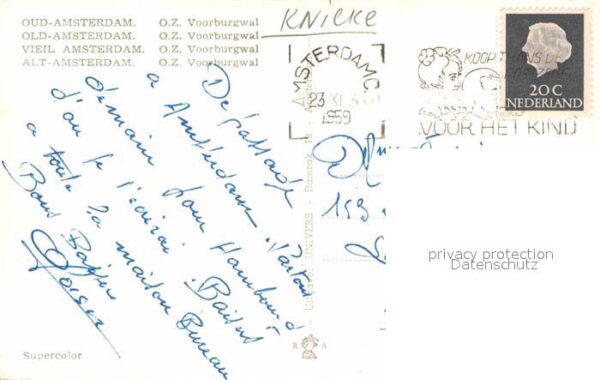 OUD-AMSTERDAM. O.Z. Voorburgwal
OLD-AMSTERDAM. O.Z. Voorburgwal
VIEIL AMSTERDAM. O.Z. Voorburgwal
ALT-AMSTERDAM. O.Z. Voorburgwal
KNICKE
AMSTERDAM C
23 XI
1959
KOOP THANS DE
VOOR HET KIND
20 C
NEDERLAND
De passage
a Amsterdam. Partons
demain pour Hambourg
d'où je t'écrirai. Baisers
a toute la maison Bureau
Bons Baisers
UNIVERS - Damrak
159
privacy protection
Datenschutz
Supercolor
R A